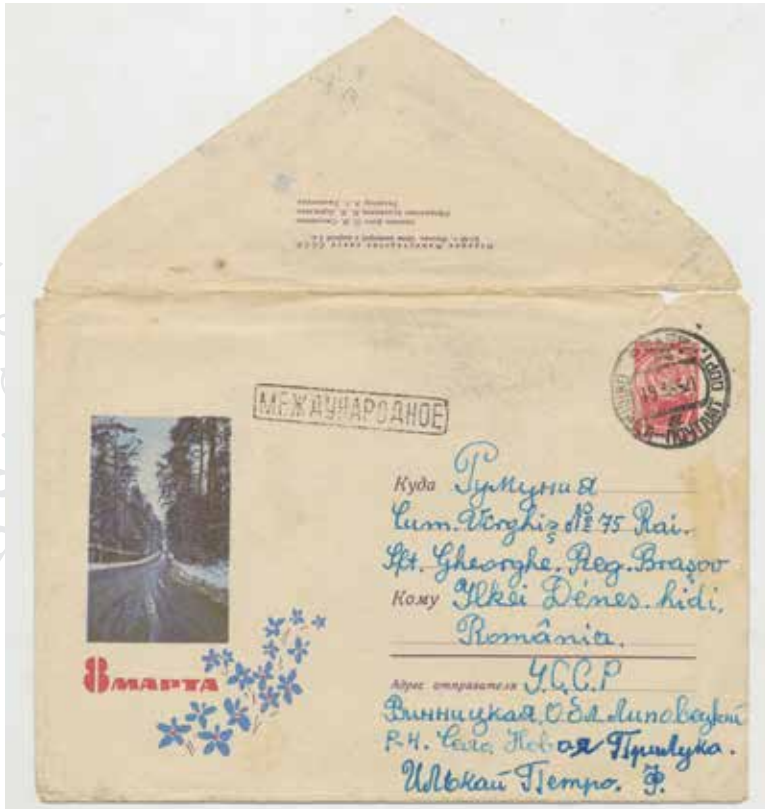 МЕЖДУНАРОДНОЕ
ПОЧТАМТ
Куда Румуния
Com. Vîrghiş № 75 Rai.
Sft. Gheorghe. Reg. Braşov
Кому Ilkei Dénes. hidi,
România.
8 МАРТА
Адрес отправителя У.С.С.Р
Винницкая. Обл. Липовецкий
Р-Н. Село Новая Прилука.
Илькай Петро. Ф.